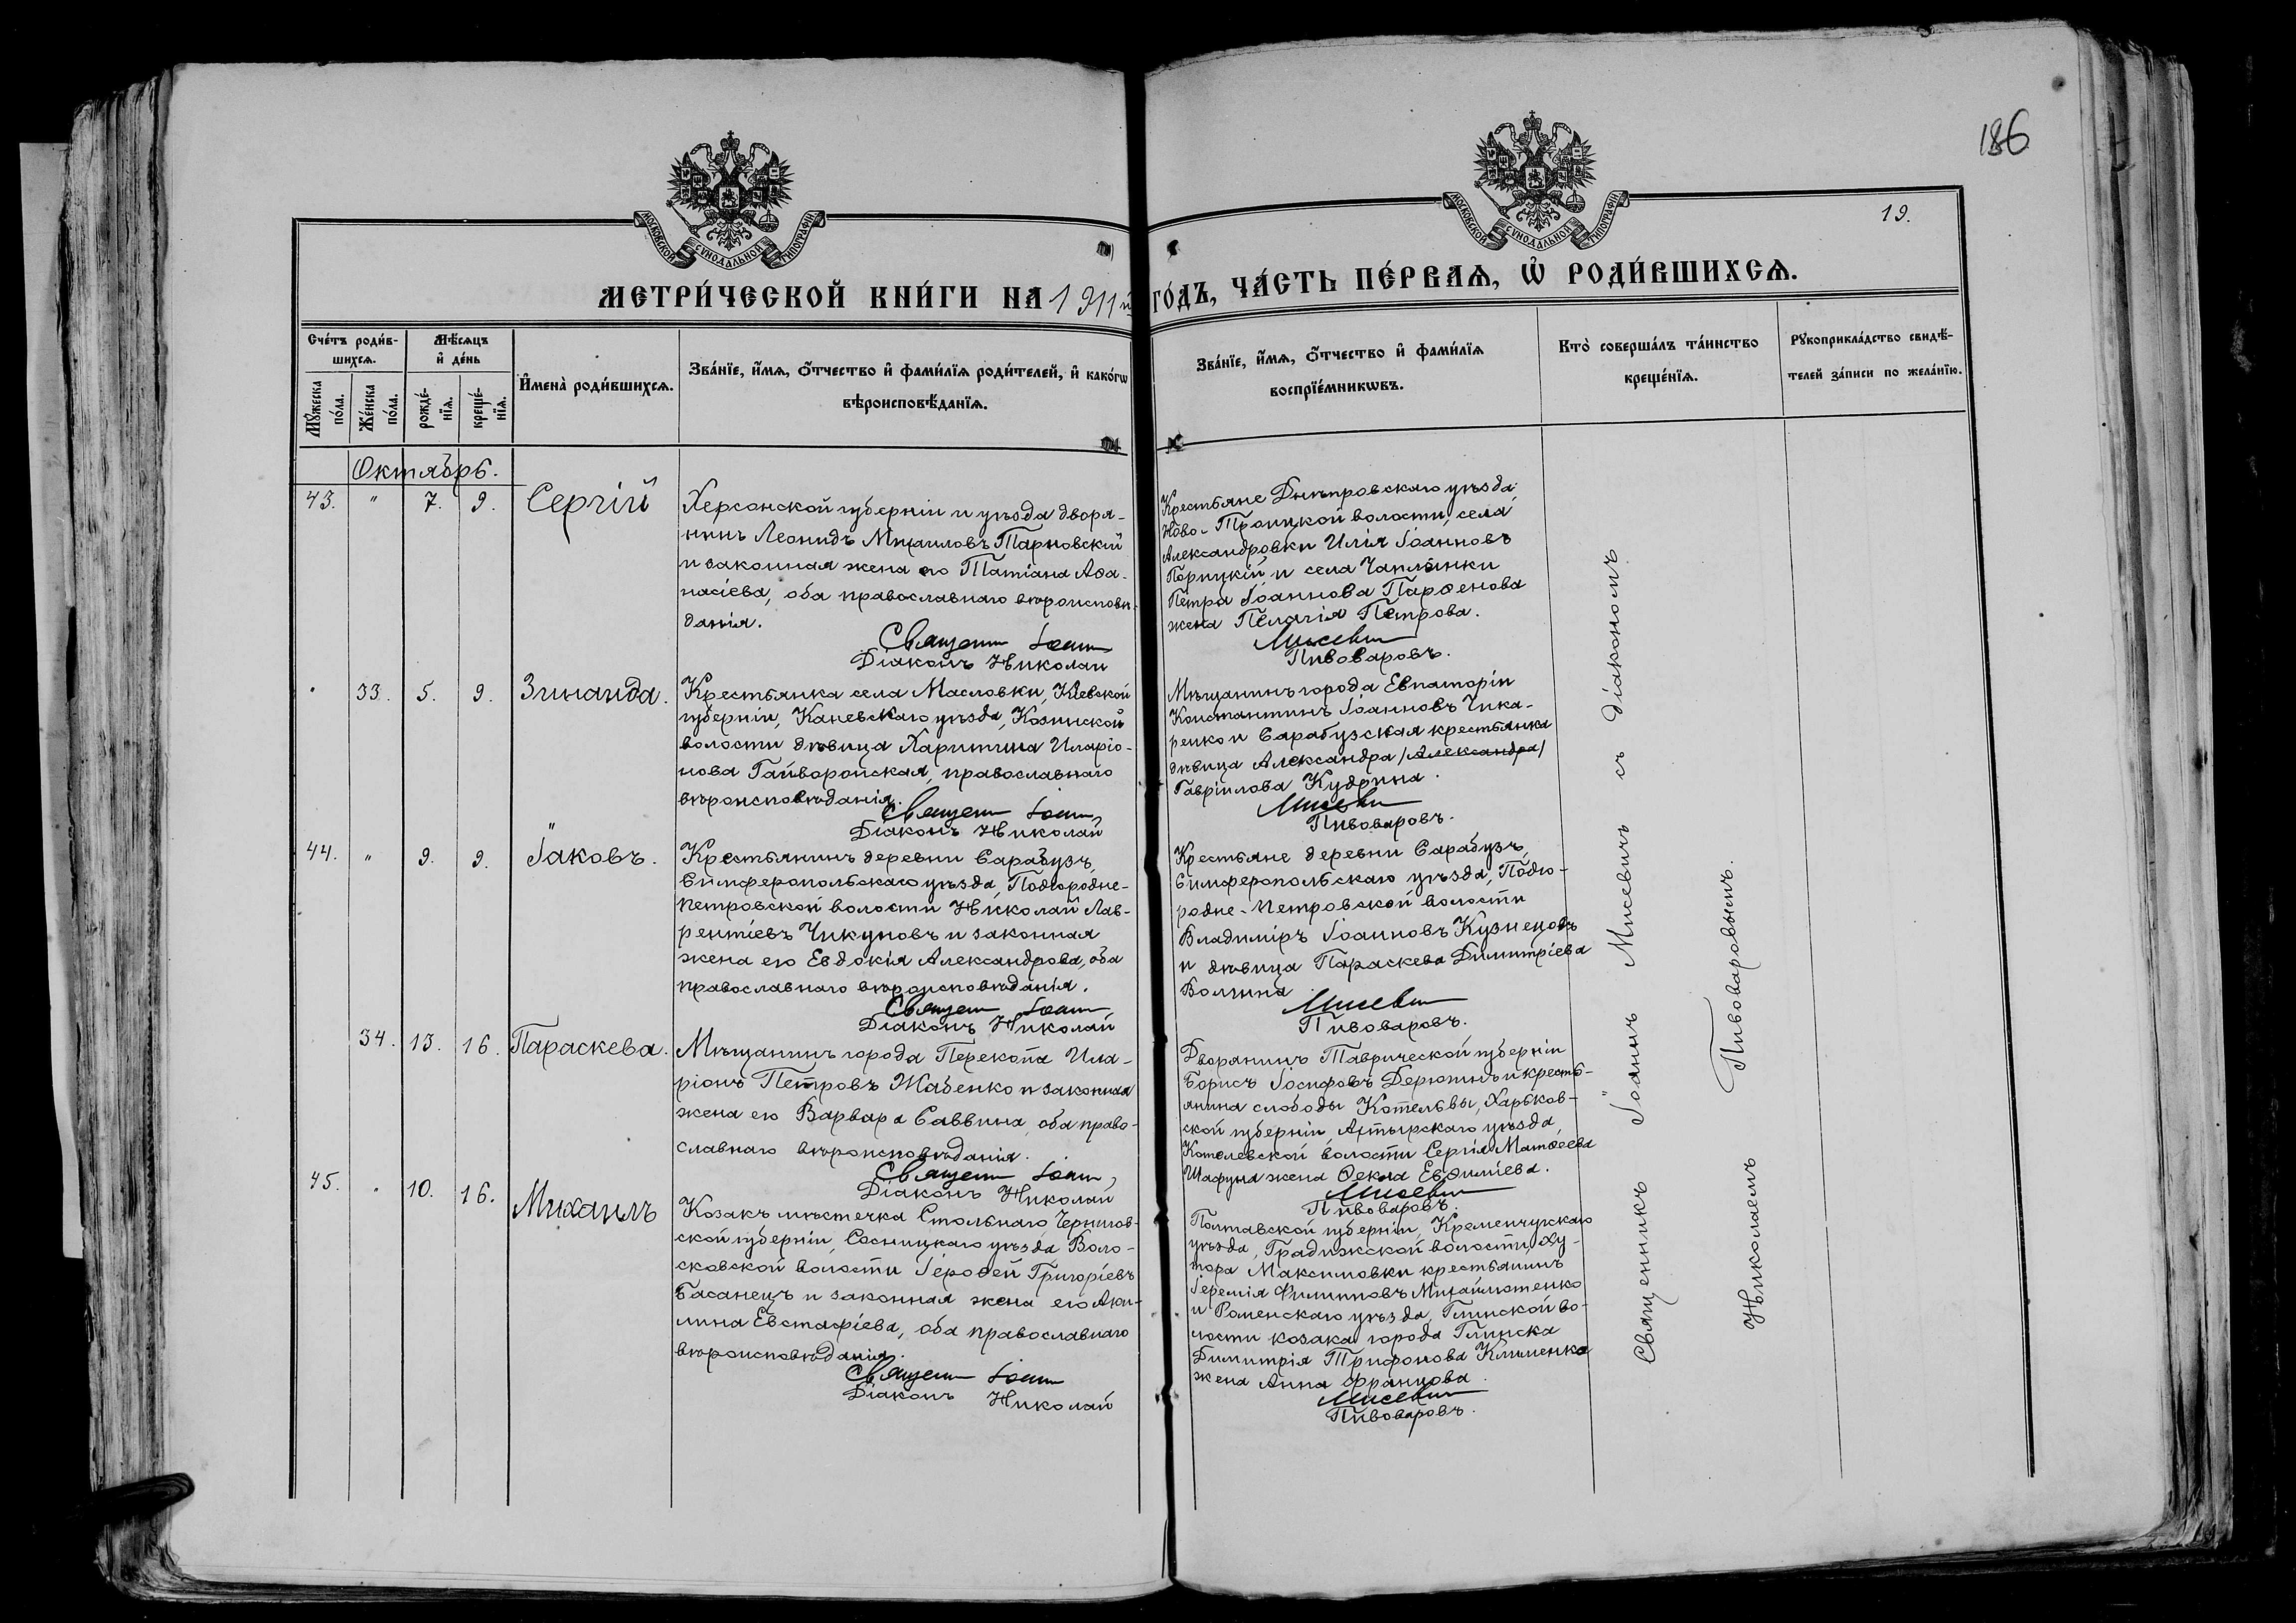 186
19.
МОСКОВСКОЙ СѴНОДАЛЬНОЙ ТИПОГРАФІИ
МОСКОВСКОЙ СѴНОДАЛЬНОЙ ТИПОГРАФІИ
МЕТРИ́ЧЕСКОЙ КНИ́ГИ НА 1911й ГО́ДЪ, ЧА́СТЬ ПЕ́РВАѦ, Ѡ҆ РОДИ́ВШИХСѦ.
Сче́тъ роди́в-
шихсѧ.
Мꙋ́жеска
по́ла.
Же́нска
по́ла.
Мѣ́сѧцъ
и҆ де́нь
рожде́-
нїѧ.
креще́-
нїѧ.
И҆мена̀ роди́вшихсѧ.
Зва́нїе, и҆́мѧ, ѻ҆́тчество и҆ фами́лїѧ роди́телей, и҆ како́гѡ
вѣроисповѣ́данїѧ.
Зва́нїе, и҆́мѧ, ѻ҆́тчество и҆ фами́лїѧ
воспрїе́мникѡвъ.
Кто̀ соверша́лъ та́инство
креще́нїѧ.
Рꙋкоприкла́дство свидѣ́-
телей за́писи по жела́нїю.
Октябрь.
43. " 7. 9. Сергій
Херсонской губерніи и уѣзда дворя-
нинъ Леонидъ Михаиловъ Тарновскій
и законная жена его Татіана Аѳа-
насіева, оба православнаго вѣроисповѣ-
данія.
Священ Іоанн
Діаконъ Николай
Крестьяне Днѣпровскаго уѣзда,
Ново-Троицкой волости, села
Александровки Илія Іоанновъ
Порицкій и села Чаплинки
Петра Іоаннова Парѳенова
жена Пелагія Петрова.
Мисевич
Пивоваровъ.
" 33. 5. 9. Зинаида.
Крестьянка села Масловки, Кіевской
губерніи, Каневскаго уѣзда, Козинской
волости дѣвица Харитина Иларіо-
нова Гайворонская, православнаго
вѣроисповѣданія.
Священ Іоанн
Діаконъ Николай
Мѣщанинъ города Евпаторіи
Константинъ Іоанновъ Чика-
ренко и Сарабузская крестьянка
дѣвица Александра /Александра/
Гавріилова Кудрина.
Мисевич
Пивоваровъ.
44. " 9. 9. Іаковъ.
Крестьянинъ деревни Сарабузъ,
Симферопольскаго уѣзда, Подгородне-
Петровской волости Николай Лав-
рентіевъ Чикуновъ и законная
жена его Евдокія Александрова, оба
православнаго вѣроисповѣданія.
Священ Іоанн
Діаконъ Николай
Крестьяне деревни Сарабузъ,
Симферопольскаго уѣзда, Подго-
родне-Петровской волости
Владиміръ Іоанновъ Кузнецовъ
и дѣвица Параскева Димитріева
Волгина
Мисевич
Пивоваровъ.
34. 13. 16. Параскева.
Мѣщанинъ города Перекопа Ила-
ріонъ Петровъ Жабенко и законная
жена его Варвара Саввина, оба право-
славнаго вѣроисповѣданія.
Священ Іоанн
Діаконъ Николай
Дворянинъ Таврической губерніи
Борисъ Іосифовъ Дерюгинъ и кресть-
янина слободы Котельвы, Харьков-
ской губерніи, Ахтырскаго уѣзда,
Котелевской волости Сергія Матѳеева
Шафуна жена Ѳекла Евѳиміева.
Мисевич
Пивоваровъ.
45. " 10. 16. Михаилъ
Козакъ мѣстечка Стольнаго, Чернигов-
ской губерніи, Сосницкаго уѣзда Воло-
сковской волости Іероѳей Григоріевъ
Басанецъ и законная жена его Аки-
лина Евстафіева, оба православнаго
вѣроисповѣданія.
Священ Іоанн
Діаконъ Николай
Полтавской губерніи, Кременчугскаго
уѣзда, Градижской волости, ху-
тора Максимовки крестьянинъ
Іеремія Филипповъ Михайлютенко
и Роменскаго уѣзда, Глинской во-
лости козака города Глинска
Димитрія Трифонова Клименко
жена Анна Францова.
Мисевич
Пивоваровъ.
Священникъ Іоаннъ Мисевичъ съ діакономъ
Николаемъ Пивоваровымъ.